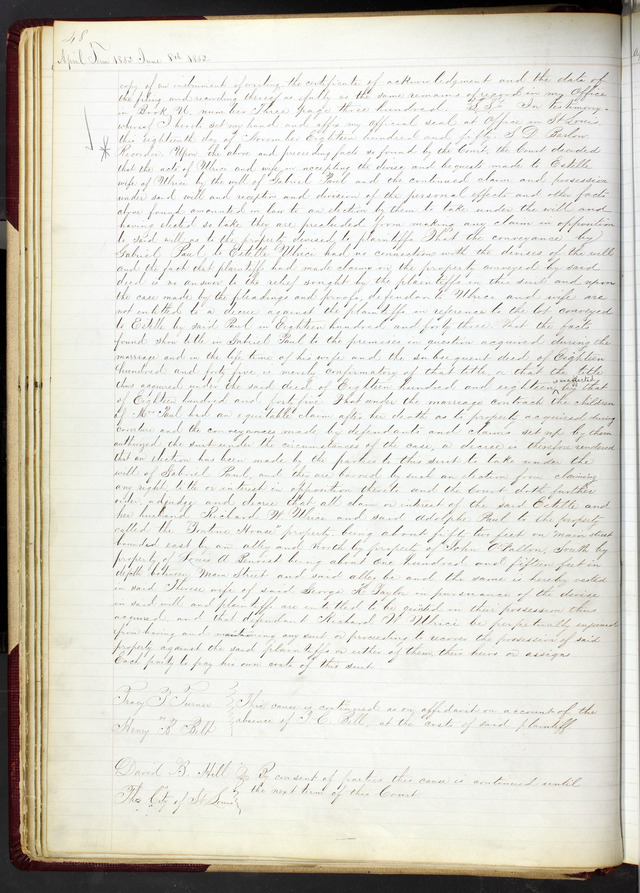 48
April Term 1852 June 8th 1852
copy of an instrument of writing the certificate of acknowledgment and the date of
the filing and recording thereof as fully as the same remains of record in my Office
in Book U, number Three page three hundred In testimony
whereof I hereto set my hand and affix my official seal at Office in St Louis
this eighteenth day of November Eighteen hundred and fifty S D Barlow
Recorder Upon the above and preceding facts so found by the Court, the Court decided
that the acts of Ulrici and wife in accepting the devise and bequests made to Estelle
wife of Ulrici by the will of Gabriel Paul and the continued claim and possession
under said will and reception and division of the personal effects and the facts
above found amounted in law to an election by them to take under the will and
having elected so to take they are precluded from making any claim in opposition
to said will as to the property devised to plaintiffs That the conveyance by
Gabriel Paul to Estelle Ulrici had no connection with the devises of the will
and the fact that plaintiffs had made claim on the property conveyed by said
deed is no answer to the relief sought by the plaintiffs in this suit and upon
the case made by the pleadings and proofs, defendant Ulrici and wife are
not entitled to a decree against the plaintiffs in reference to the lot conveyed
to Estelle by said Paul in Eighteen hundred and forty three That the facts
found show title in Gabriel Paul to the premises in question acquired during the
marriage and in the life time of his wife and the subsequent deed of Eighteen
hundred and forty five is merely confirmatory of that title or that the title
thus acquired under the said deed of Eighteen hundred and eighteen that
of Eighteen hundred and forty five That under the marriage contract the children
of Mrs Paul had an equitable claim after her death as to property acquired during
coverture and the conveyances made by defendants and claims set up by them
authorized the suit under the circumstances of the case, a decree is therefore rendered
that an election has been made by the parties to this suit to take under the
will of Gabriel Paul, and they are bound by such an election from claiming
any right, title or interest in opposition thereto and the Court doth further
order adjudge and decree that all claim or interest of the said Estelle and
her husband Richard W Ulrici and said Adolphe Paul to the property
called the "Pontine House" property being about fifty two feet on Main street
bounded east by an alley and North by property of John O'Fallon, South by
property of Louis A Benoist being about one hundred and fifteen feet in
depth between Main Street and said alley be and the same is hereby vested
in said Therese wife of said George R Taylor in pursuance of the devise
in said will and plaintiffs are entitled to be quieted in their possession thus
acquired and that defendant Richard W Ulrici be perpetually enjoined
from having and maintaining any suit or proceeding to recover the possession of said
property against the said plaintiffs or either of them, their heirs or assigns
Each party to pay his own costs of this suit
This cause is continued as on affidavit on account of the
Henry B Belt absence of T C Bell, at the costs of said plaintiff
David B Hill By consent of parties this cause is continued until
The City of St Louis the next term of this Court